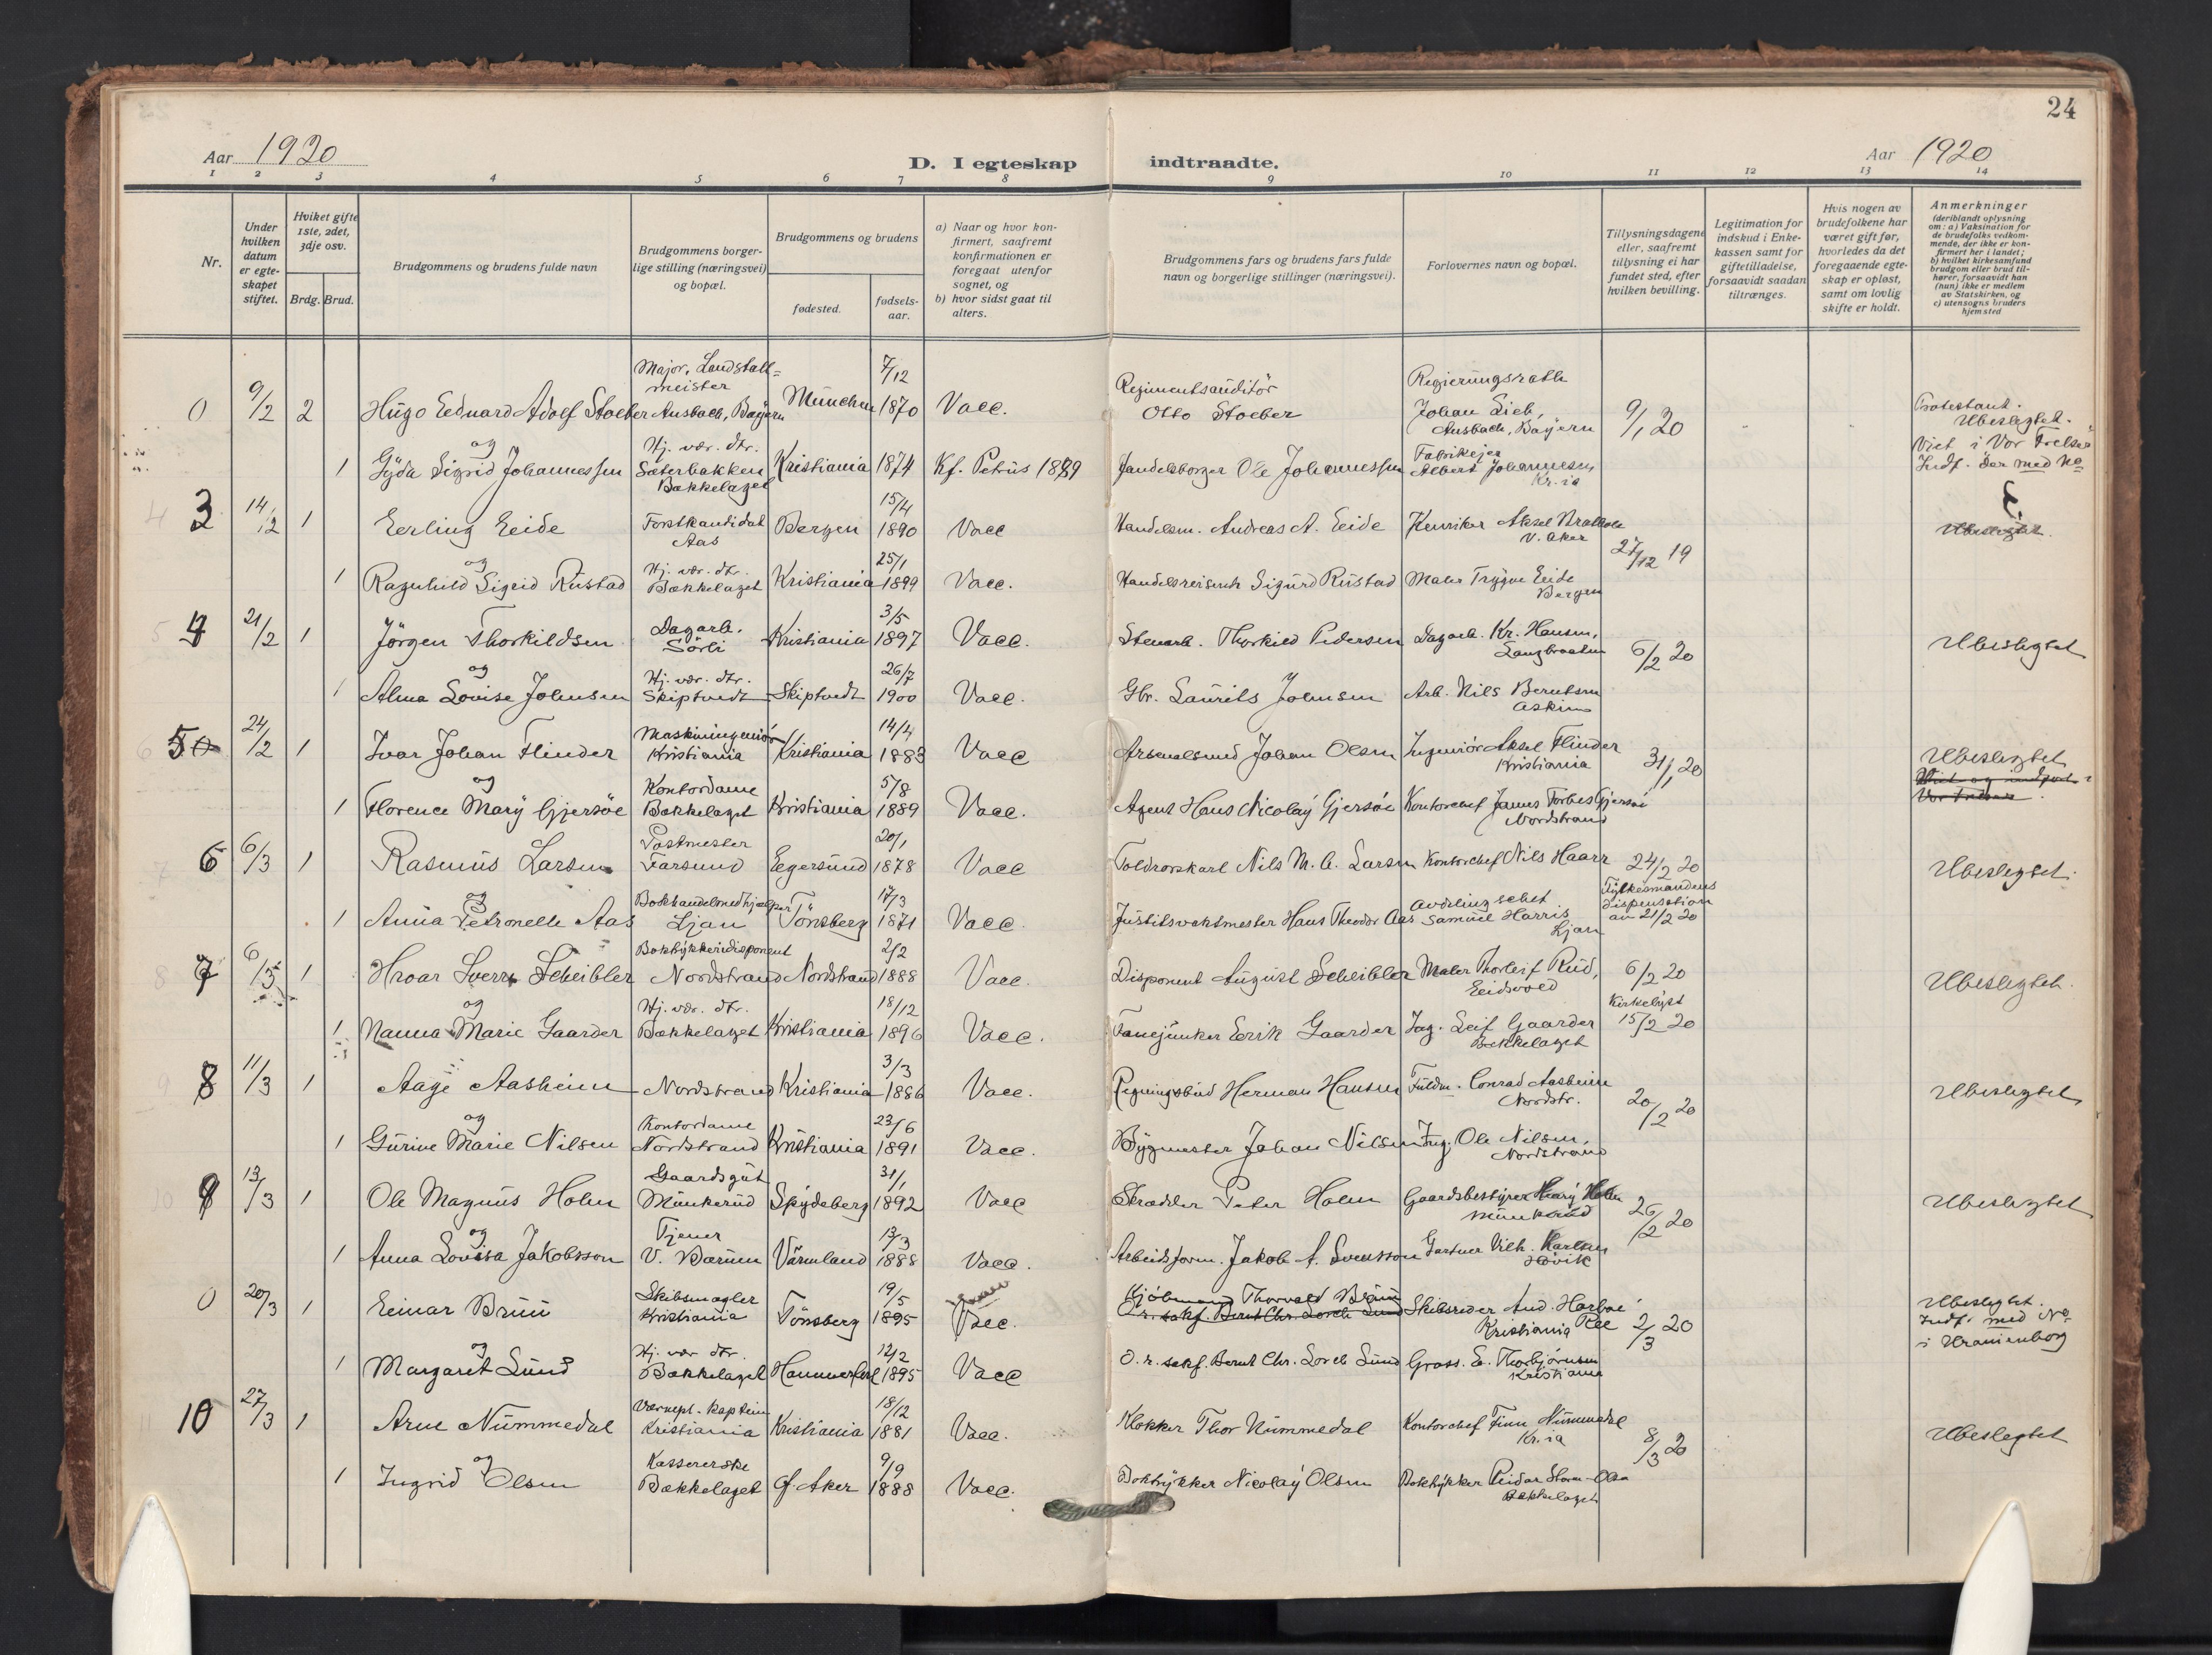 24
Aar 1920
D. I egteskap indtraadte.
Aar 1920
1 2 3 4 5 6 7 8 9 10 11 12 13 14
Nr.
Under hvilken datum er egteskapet stiftet.
Hviket gifte 1ste, 2det, 3dje osv.
Brdg. Brud.
Brudgommens og brudens fulde navn
Brudgommens borgerlige stilling (næringsvei) og bopæl.
Brudgommens og brudens
fødested.
fødselsaar.
a) Naar og hvor konfirmert, saafremt konfirmationen er foregaat utenfor sognet, og
b) hvor sidst gaat til alters.
Brudgommens fars og brudens fars fulde navn og borgerlige stillinger (næringsvei).
Forlovernes navn og bopæl.
Tillysningsdagene eller, saafremt tillysning ei har fundet sted, efter hvilken bevilling.
Legitimation for indskud i Enkekassen samt for giftetilladelse, forsaavidt saadan tiltrænges.
Hvis nogen av brudefolkene har været gift før, hvorledes da det foregaaende egteskap er opløst, samt om lovlig skifte er holdt.
Anmerkninger
(deriblandt oplysning om: a) Vaksination for de brudefolks vedkommende, der ikke er konfirmert her i landet; b) hvilket kirkesamfund brudgom eller brud tilhører, forsaavidt han (hun) ikke er medlem av Statskirken, og c) utensogns bruders hjemsted
0 9/2 2 Hugo Eduard Adolf Stoeber Major, Landstallmeister Ansbach, Bayern München 7/12 1870 Vacc. Regimentsauditör Otto Stoeber Regierungsrath Johan Lieb, Ansbach, Bayern 9/1 20 Protestant. Ubeslegtet. Viet i Vor Frelser Indf. der med No
og
1 Gyda Sigrid Johannessen Hj. vær. dtr. Sæterbakken Bækkelaget Kristiania 1874 Kf. Petrus 1889 Handelsborger Ole Johannessen Fabrikejer Albert Johannessen Kr.ia
3 14/2 1 Eerling Eeide Forstkandidat Aas Bergen 15/4 1890 Vacc Handelsm. Andreas A. Eeide Aksel V. Aker 27/12 19 Ubeslegtet.
og
1 Ragnhild Sigrid Rustad Hj. vær. dtr. Bækkelaget Kristiania 25/1 1899 Vacc. Handelsreisende Sigurd Rustad Maler Trygve Eeide Bergen
4 21/2 1 Jörgen Thorkildsen Dagarb. Sörli Kristiania 3/5 1897 Vacc. Stenarb. Thorkild Pedersen Dagarb. Kr. Hansen, Langbraaten 6/2 20 Ubeslegtet
og
1 Alma Lovise Johnsen Hj. vær. dtr. Skiptvedt Skiptvedt 26/7 1900 Vacc. Gbr. Laurits Johnsen Arb. Nils Berntsen Askim
5 24/2 1 Ivar Johan Flinder Maskiningeniör Kristiania Kristiania 14/4 1883 Vacc Arsenalsmed Johan Olsen Ingeniör Aksel Flinder Kristiania 31/1 20 Ubeslegtet Viet og indført i Vor Frelser.
og
1 Florence Mary Gjersöe Kontordame Bækkelaget Kristiania 5/8 1889 Vacc. Agent Hans Nicolay Gjersöe Kontorchef James Forbes Gjersöe Nordstrand
6 6/3 1 Rasmus Larsen Postmester Farsund Egersund 20/1 1878 Vacc Toldrorskarl Nils M. A. Larsen Kontorchef Nils Haarr 24/2 20 Ubeslegtet.
og
1 Anna Petronelle Aas Bokhandelmedhjælper Ljan Tönsberg 17/3 1871 Vacc. Justitsvaktmester Hans Theodor Aas Avdelingschef Samuel Harris Ljan Fylkesmandens dispensation av 21/2 20
7 6/3 1 Hroar Sverre Scheibler Boktrykkeridisponent Nordstrand Nordstrand 2/2 1888 Vacc. Disponent August Scheibler Maler Thorleif Rud, Eidsvold 6/2 20 Ubeslegtet.
og
1 Nanna Marie Gaarder Hj. vær. dtr. Bækkelaget Kristiania 18/12 1896 Vacc. Fanejunker Eerik Gaarder Ing. Leif Gaarder Bækkelaget Kirkelyst 15/2 20
8 11/3 1 Aage Aasheim Nordstrand Kristiania 3/3 1886 Vacc. Regningsbud Herman Hansen Fuldm. Conrad Aasheim Nordstr. 20/2 20 Ubeslegtet
og
1 Gurine Marie Nilsen Kontordame Nordstrand Kristiania 23/6 1891 Vacc. Bygmester Johan Nilsen Ing. Ole Nilsen, Nordstrand
9 13/3 1 Ole Magnus Holm Gaardsgut Munkerud Spydeberg 31/1 1892 Vacc Skrædder Peter Holm Gaardsbestyrer Harry Holm Munkerud 26/2 20 Ubeslegtet
og
1 Anna Lovisa Jakobsson Tjener V. Bærum Värmland 13/3 1888 Vacc. Arbeidsform. Jakob A. Svensson Gartner Vilh. Karlsen Hövik
0 20/3 1 Eeinar Bruu Skibsmægler Kristiania Tönsberg 19/5 1895 Vacc. Kjöbmand Thorvald Bruu O. r. sakf. Bernt Chr. Lorch Lund Skibsreder And. Harboe Ree Kristiania 2/3 20 Ubeslegtet. Indf. med No i Uranienborg
og
1 Margaret Lund Hj. vær dtr. Bækkelaget Hammerfest 12/2 1895 Vacc O. r. sakf. Bernt Chr. Lorch Lund Gross. E. Thorbjörnsen Kristiania
10 27/3 1 Arne Nummedal Vernepl. kaptein Kristiania Kristiania 18/12 1881 Vacc. Klokker Thor Nummedal Kontorchef Finn Nummedal Kr.ia 8/3 20 Ubeslegtet
og
1 Ingrid Olsen Kassererske Bækkelaget Gl. Aker 9/9 1888 Vacc. Boktrykker Nicolay Olsen Boktrykker Reidar Storm-Olsen Bækkelaget